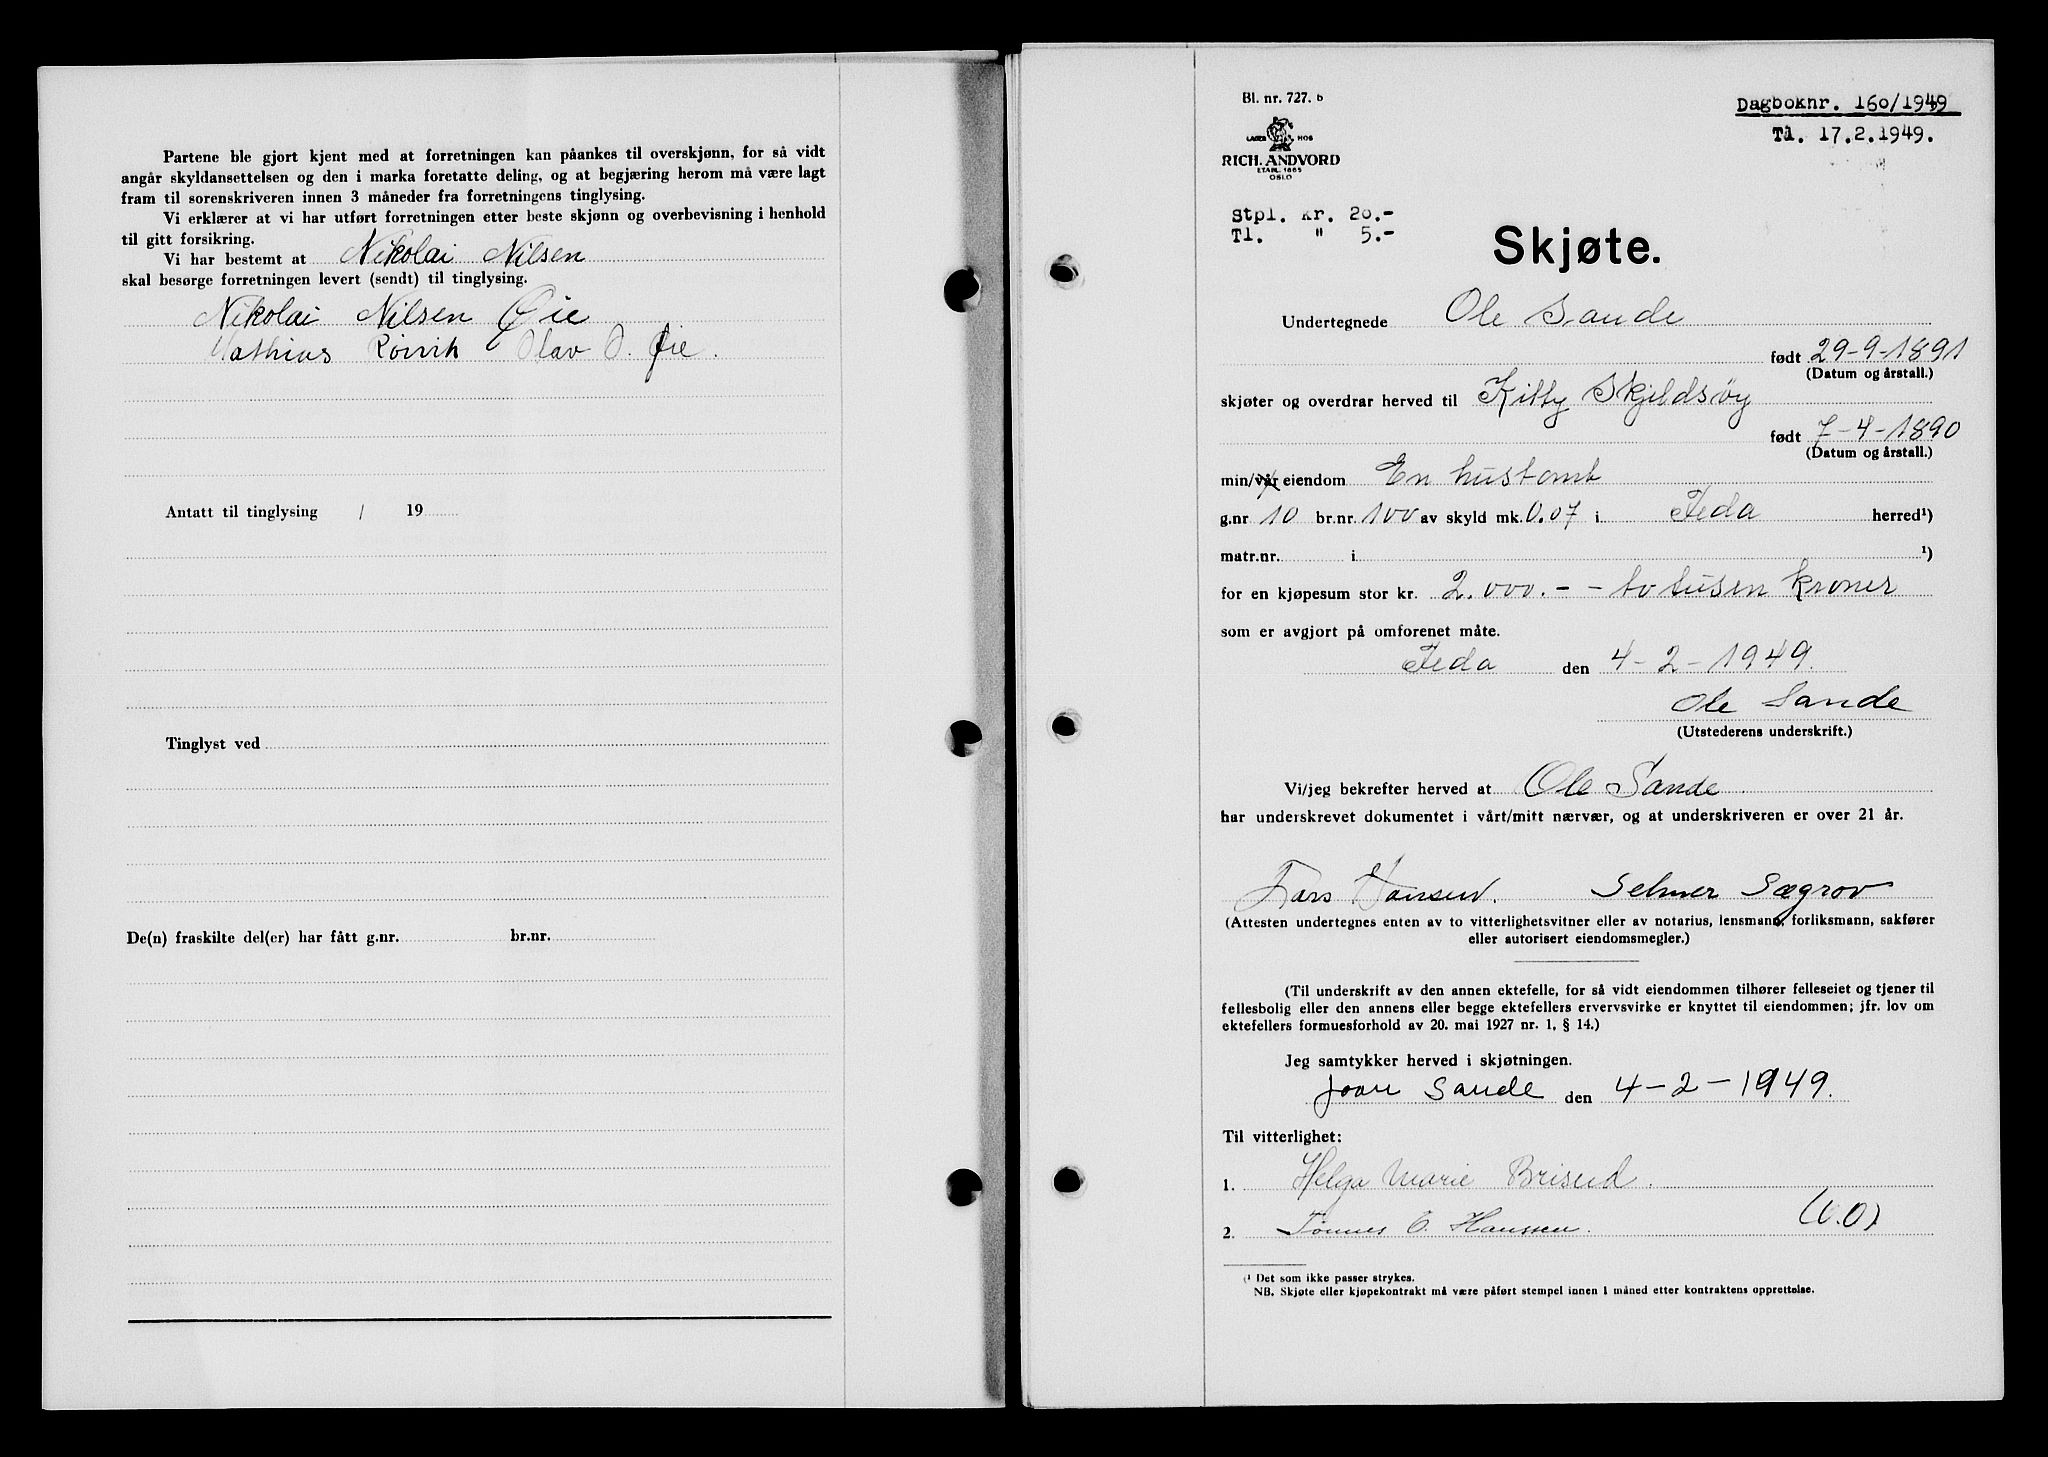 Partene ble gjort kjent med at forretningen kan påankes til overskjønn, for så vidt
angår skyldansettelsen og den i marka foretatte deling, og at begjæring herom må være lagt
fram til sorenskriveren innen 3 måneder fra forretningens tinglysing.
Vi erklærer at vi har utført forretningen etter beste skjønn og overbevisning i henhold
til gitt forsikring.
Vi har bestemt at Nikolai Nilsen
skal besørge forretningen levert (sendt) til tinglysing.
Nikolai Nilsen Øie
Mathias Røirvik Olav O. Øie.
Antatt til tinglysing / 19
Tinglyst ved
De(n) fraskilte del(er) har fått g.nr. br.nr.
Bl. nr. 727. b
Dagboknr. 160/1949
Tl. 17.2.1949.
LAGER HOS
RICH. ANDVORD
ETABL. 1865
OSLO
Stpl. kr. 20.-
Tl. " 5.-
Skjøte.
Undertegnede Ole Sande
født 29-9-1891
(Datum og årstall.)
skjøter og overdrar herved til Kitty Skjeldsøy
født 7-4-1890
(Datum og årstall.)
min/vår eiendom En hustomt
g.nr 10 br.nr. 100 av skyld mk. 0.07 i Feda herred¹)
matr.nr. i ¹)
for en kjøpesum stor kr. 2.000.- - to tusen kroner
som er avgjort på omforenet måte.
Feda den 4-2-1949.
Ole Sande
(Utstederens underskrift.)
Vi/jeg bekrefter herved at Ole Sande
har underskrevet dokumentet i vårt/mitt nærvær, og at underskriveren er over 21 år.
Lars Hansen. Selmer Sægrov
(Attesten undertegnes enten av to vitterlighetsvitner eller av notarius, lensmann, forliksmann, sakfører
eller autorisert eiendomsmegler.)
(Til underskrift av den annen ektefelle, for så vidt eiendommen tilhører felleseiet og tjener til
fellesbolig eller den annens eller begge ektefellers ervervsvirke er knyttet til eiendommen; jfr. lov om
ektefellers formuesforhold av 20. mai 1927 nr. 1, § 14.)
Jeg samtykker herved i skjøtningen.
Joan Sande den 4-2-1949.
Til vitterlighet:
1. Helga Marie Brisud.
2. Tønnes E. Hanssen. (V.O)
(¹ Det som ikke passer strykes.
NB. Skjøte eller kjøpekontrakt må være påført stempel innen 1 måned etter kontraktens opprettelse.